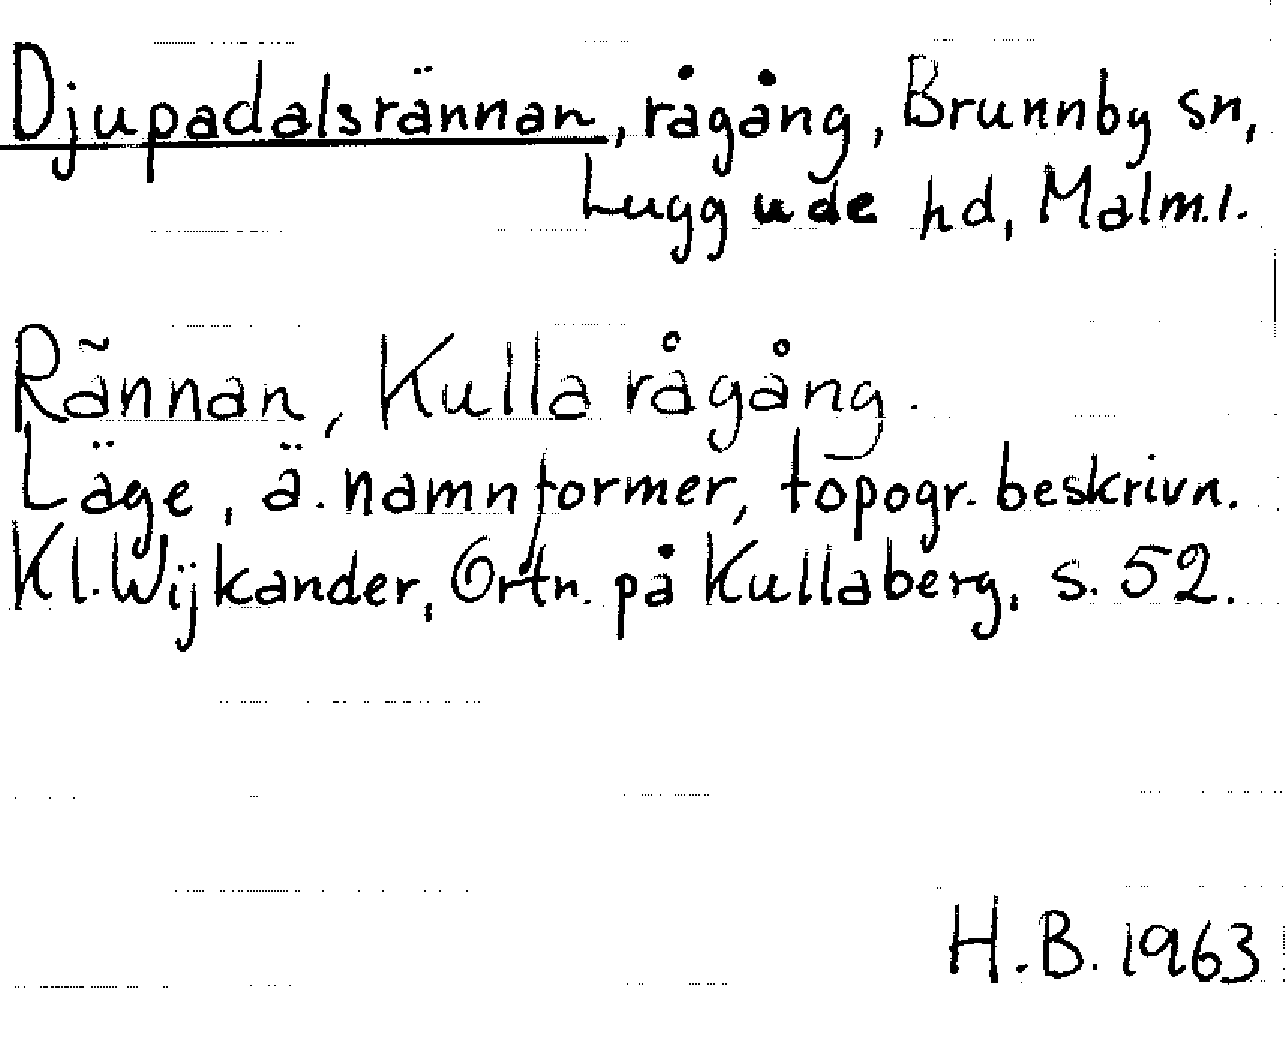 Djupadalsrännan, rågång, Brunnby sn,
Luggude hd, Malm.l.
Rännan, Kulla rågång.
Läge, ä. namnformer, topogr. beskrivn.
Kl. Wijkander, Ortn. på Kullaberg, s. 52.
H.B. 1963